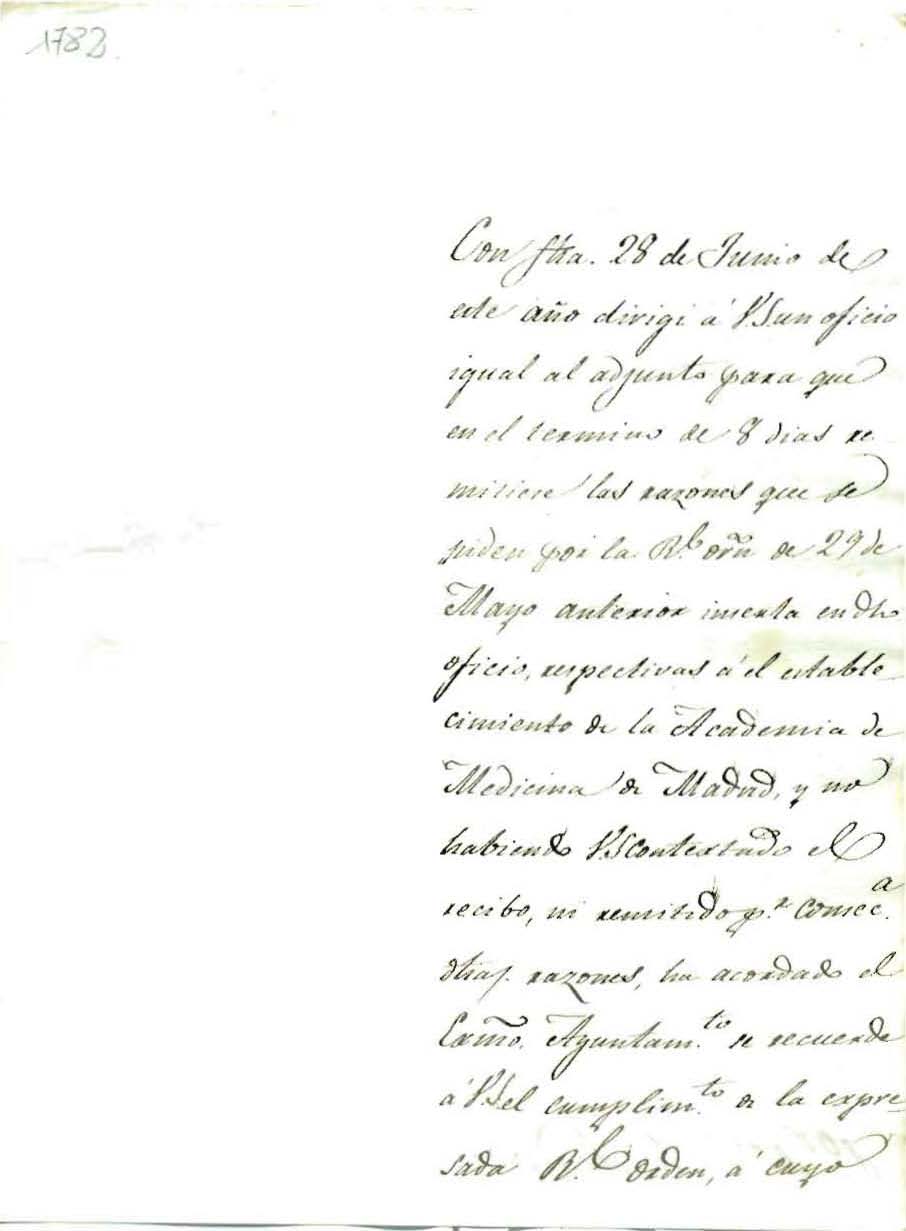 1782.
Con fha. 28 de Junio de
este año dirigi á V.S un oficio
igual al adjunto para que
en el termino de 8 dias re
mitiese las razones que se
piden por la Rl. orñ de 29 de
Mayo anterior inserta en dho
oficio, respectivas á el estable
cimiento de la Academia de
Medicina de Madrid, y no
habiendo V.S contextado el
recibo, ni remitido p.r
dhas. razones, ha acordado el
Exmo. Ayuntam.to se recuerde
á V.S el cumplim.to de la expre-
sada Rl. orden, á cuyo